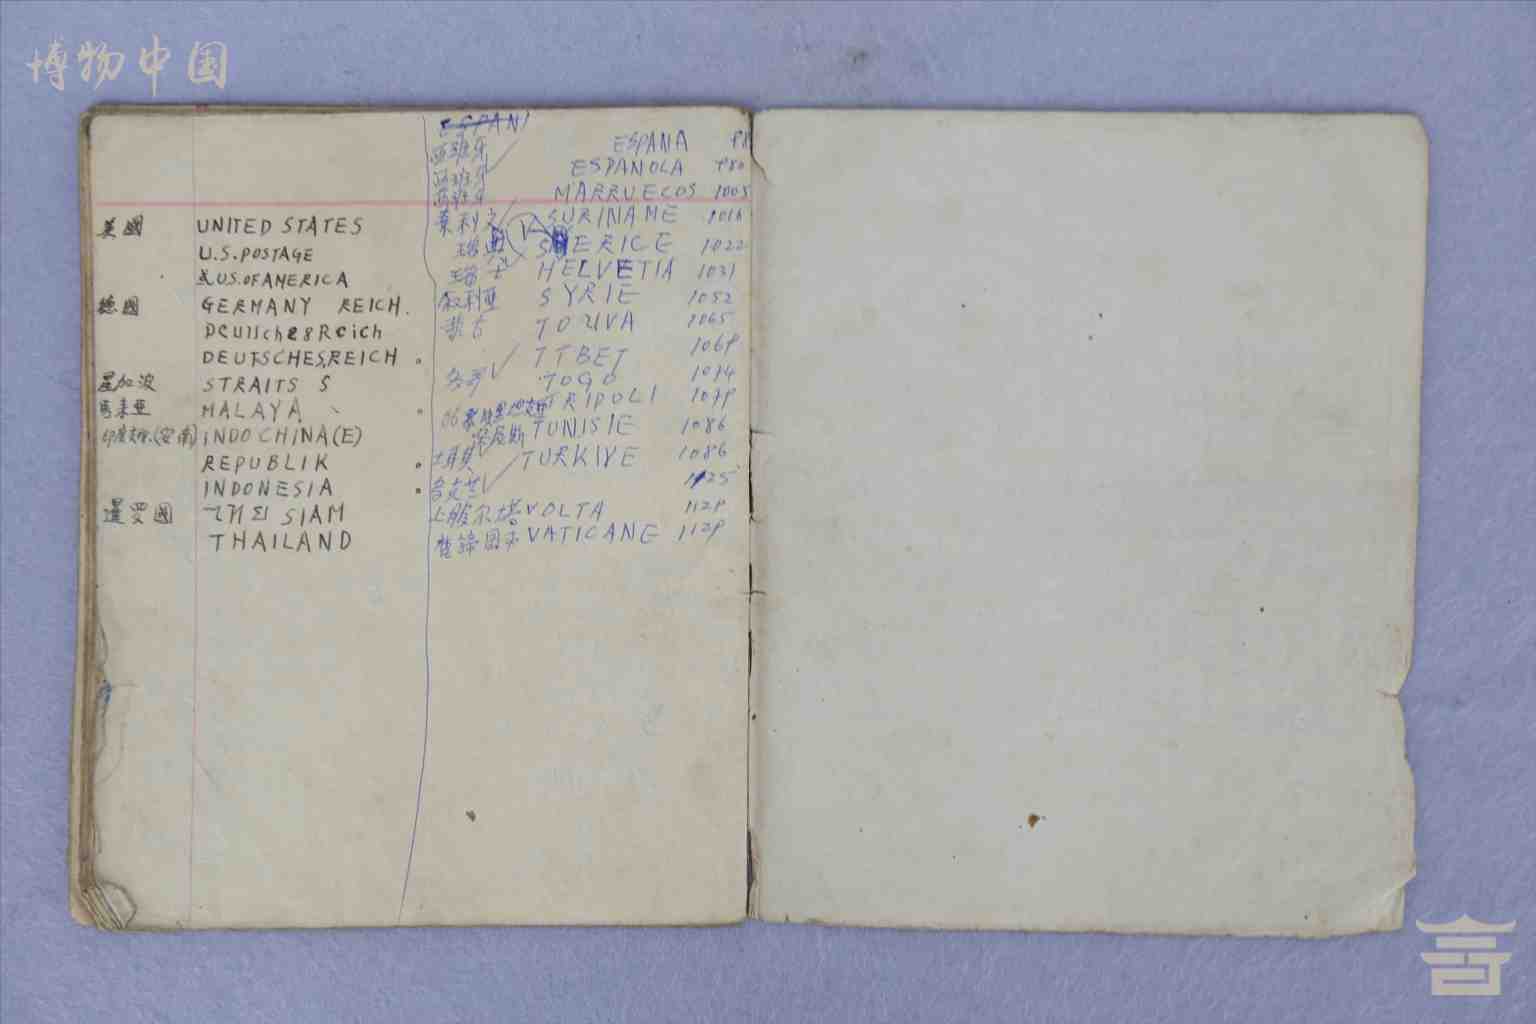 博物中国
美國 UNITED STATES
U.S.POSTAGE
或U.S.OFAMERICA
德國 GERMANY REICH.
Deutsches Reich
DEUTSCHES.REICH
星加波 STRAITS S
馬来亜 MALAYA
印度支那(安南) INDO CHINA(E)
REPUBLIK
INDONESIA
暹罗國 SIAM
THAILAND
ESPAN
西班牙 ESPANA
西班牙 ESPANOLA 980
西班牙 MARRUECOS 1005
SURINAME 1016
瑞典 ERICE 1022
瑞士 HELVETIA 1031
叙利亚 SYRIE 1052
蒙古 TOUVA 1065
TTBET 1069
多哥 TOGO 1074
TRIPOLI 1079
突尼斯 TUNISIE 1086
土耳其 TURKIYE 1086
1125
上服尔塔 VOLTA 1129
VATICANE 1129